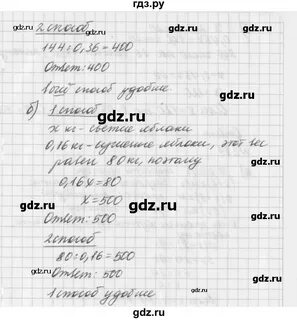 гдз.ру
2 способ
144:0,36=400
Ответ: 400
способ удобнее
б) 1 способ
x кг - свежие яблоки
0,16x - сушеные яблоки, этот вес
равен 80 кг, поэтому
0,16x=80
x=500
Ответ: 500
2 способ
80:0,16=500
Ответ: 500
1 способ удобнее
gdz.ru